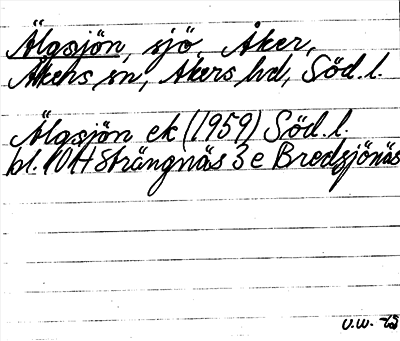 Älgsjön, sjö, Åker,
Åkers sn, Åkers hd, Söd. l.
Älgsjön ek (1959) Söd. l.
bl. 10 H Strängnäs 3 e Bredsjönäs
U.W. -63